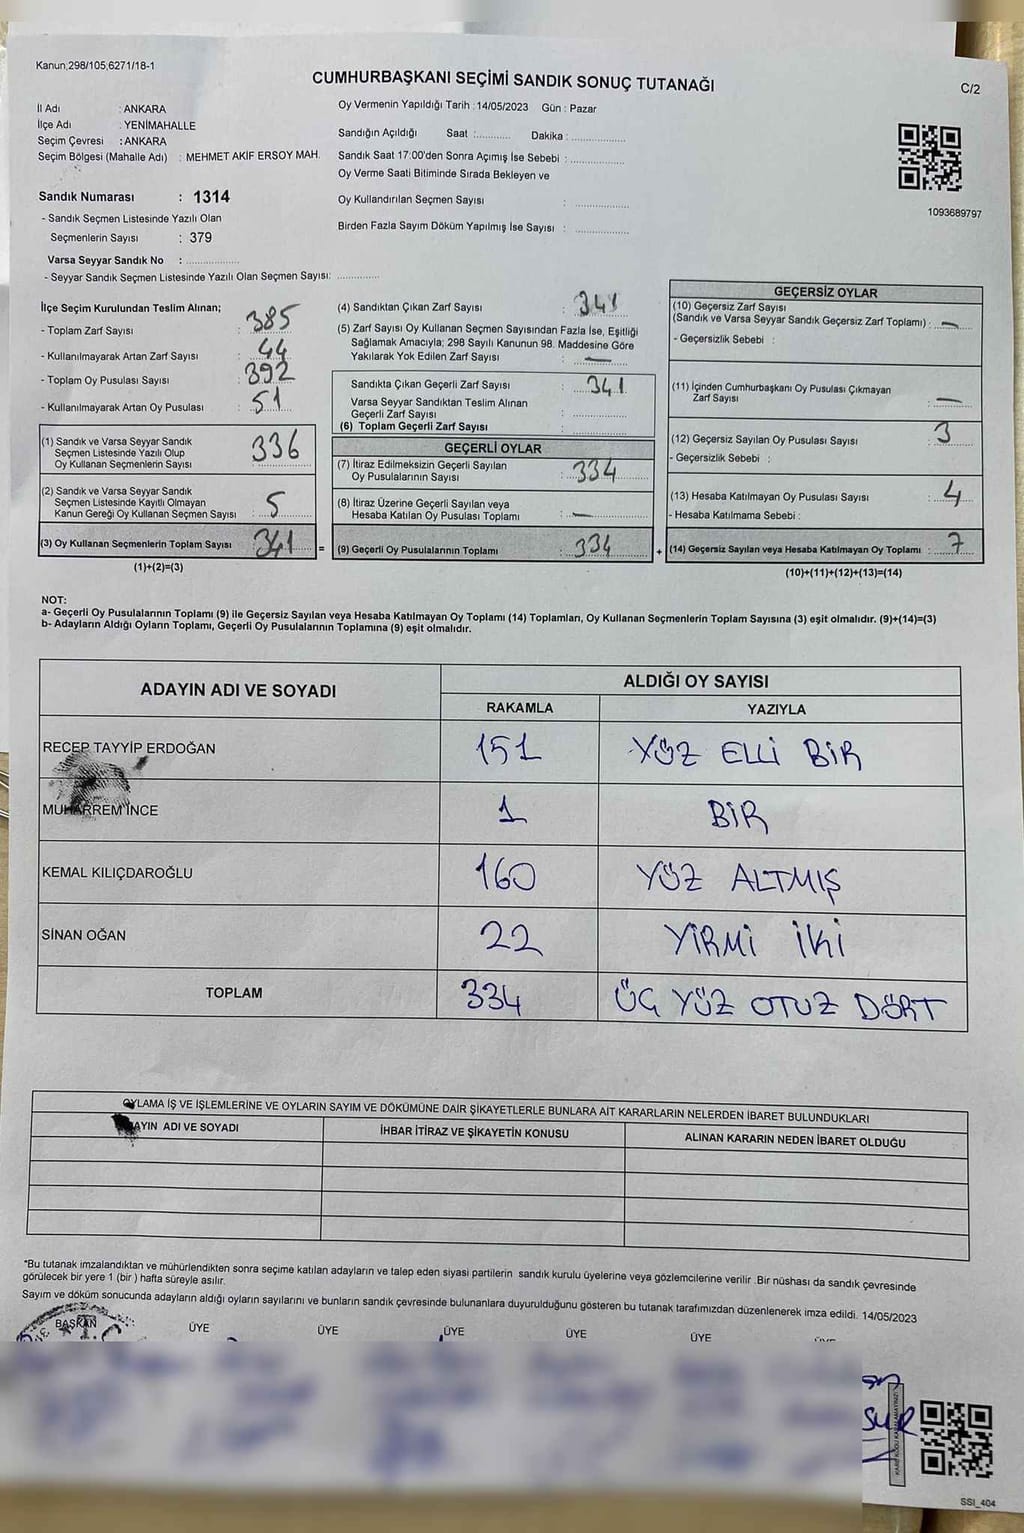 Kanun;298/105,6271/18-1
CUMHURBAŞKANI SEÇİMİ SANDIK SONUÇ TUTANAĞI
C/2
İl Adı : ANKARA
İlçe Adı : YENİMAHALLE
Seçim Çevresi : ANKARA
Seçim Bölgesi (Mahalle Adı) : MEHMET AKİF ERSOY MAH.
Sandık Numarası : 1314
- Sandık Seçmen Listesinde Yazılı Olan
Seçmenlerin Sayısı : 379
Varsa Seyyar Sandık No : ................
- Seyyar Sandık Seçmen Listesinde Yazılı Olan Seçmen Sayısı: .............
Oy Vermenin Yapıldığı Tarih : 14/05/2023 Gün : Pazar
Sandığın Açıldığı Saat :........... Dakika : ................
Sandık Saat 17:00'den Sonra Açımış İse Sebebi : ................
Oy Verme Saati Bitiminde Sırada Bekleyen ve
Oy Kullandırılan Seçmen Sayısı : ................
Birden Fazla Sayım Döküm Yapılmış İse Sayısı : ................
1093689797
İlçe Seçim Kurulundan Teslim Alınan;
- Toplam Zarf Sayısı : 385
- Kullanılmayarak Artan Zarf Sayısı : 44
- Toplam Oy Pusulası Sayısı : 392
- Kullanılmayarak Artan Oy Pusulası : 51
(1) Sandık ve Varsa Seyyar Sandık
Seçmen Listesinde Yazılı Olup
Oy Kullanan Seçmenlerin Sayısı : 336
(2) Sandık ve Varsa Seyyar Sandık
Seçmen Listesinde Kayıtlı Olmayan
Kanun Gereği Oy Kullanan Seçmen Sayısı : 5
(3) Oy Kullanan Seçmenlerin Toplam Sayısı : 341 =
(1)+(2)=(3)
(4) Sandıktan Çıkan Zarf Sayısı : 341
(5) Zarf Sayısı Oy Kullanan Seçmen Sayısından Fazla İse, Eşitliği
Sağlamak Amacıyla; 298 Sayılı Kanunun 98. Maddesine Göre
Yakılarak Yok Edilen Zarf Sayısı : —
Sandıkta Çıkan Geçerli Zarf Sayısı : 341
Varsa Seyyar Sandıktan Teslim Alınan
Geçerli Zarf Sayısı : ................
(6) Toplam Geçerli Zarf Sayısı : ................
GEÇERLİ OYLAR
(7) İtiraz Edilmeksizin Geçerli Sayılan
Oy Pusulalarının Sayısı : 334
(8) İtiraz Üzerine Geçerli Sayılan veya
Hesaba Katılan Oy Pusulası Toplamı : —
(9) Geçerli Oy Pusulalarının Toplamı : 334 +
GEÇERSİZ OYLAR
(10) Geçersiz Zarf Sayısı
(Sandık ve Varsa Seyyar Sandık Geçersiz Zarf Toplamı) : —
- Geçersizlik Sebebi :
(11) İçinden Cumhurbaşkanı Oy Pusulası Çıkmayan
Zarf Sayısı : —
(12) Geçersiz Sayılan Oy Pusulası Sayısı : 3
- Geçersizlik Sebebi :
(13) Hesaba Katılmayan Oy Pusulası Sayısı : 4
- Hesaba Katılmama Sebebi :
(14) Geçersiz Sayılan veya Hesaba Katılmayan Oy Toplamı : 7
(10)+(11)+(12)+(13)=(14)
NOT:
a- Geçerli Oy Pusulalarının Toplamı (9) ile Geçersiz Sayılan veya Hesaba Katılmayan Oy Toplamı (14) Toplamları, Oy Kullanan Seçmenlerin Toplam Sayısına (3) eşit olmalıdır. (9)+(14)=(3)
b- Adayların Aldığı Oyların Toplamı, Geçerli Oy Pusulalarının Toplamına (9) eşit olmalıdır.
ADAYIN ADI VE SOYADI ALDIĞI OY SAYISI
RAKAMLA YAZIYLA
RECEP TAYYİP ERDOĞAN 151 YÜZ ELLİ BİR
MUHARREM İNCE 1 BİR
KEMAL KILIÇDAROĞLU 160 YÜZ ALTMIŞ
SİNAN OĞAN 22 YİRMİ İKİ
TOPLAM 334 ÜÇ YÜZ OTUZ DÖRT
OYLAMA İŞ VE İŞLEMLERİNE VE OYLARIN SAYIM VE DÖKÜMÜNE DAİR ŞİKAYETLERLE BUNLARA AİT KARARLARIN NELERDEN İBARET BULUNDUKLARI
AYIN ADI VE SOYADI İHBAR İTİRAZ VE ŞİKAYETİN KONUSU ALINAN KARARIN NEDEN İBARET OLDUĞU
*Bu tutanak imzalandıktan ve mühürlendikten sonra seçime katılan adayların ve talep eden siyasi partilerin sandık kurulu üyelerine veya gözlemcilerine verilir .Bir nüshası da sandık çevresinde
görülecek bir yere 1 (bir ) hafta süreyle asılır.
Sayım ve döküm sonucunda adayların aldığı oyların sayılarını ve bunların sandık çevresinde bulunanlara duyurulduğunu gösteren bu tutanak tarafımızdan düzenlenerek imza edildi. 14/05/2023
BAŞKAN ÜYE ÜYE ÜYE ÜYE ÜYE
SSI_404